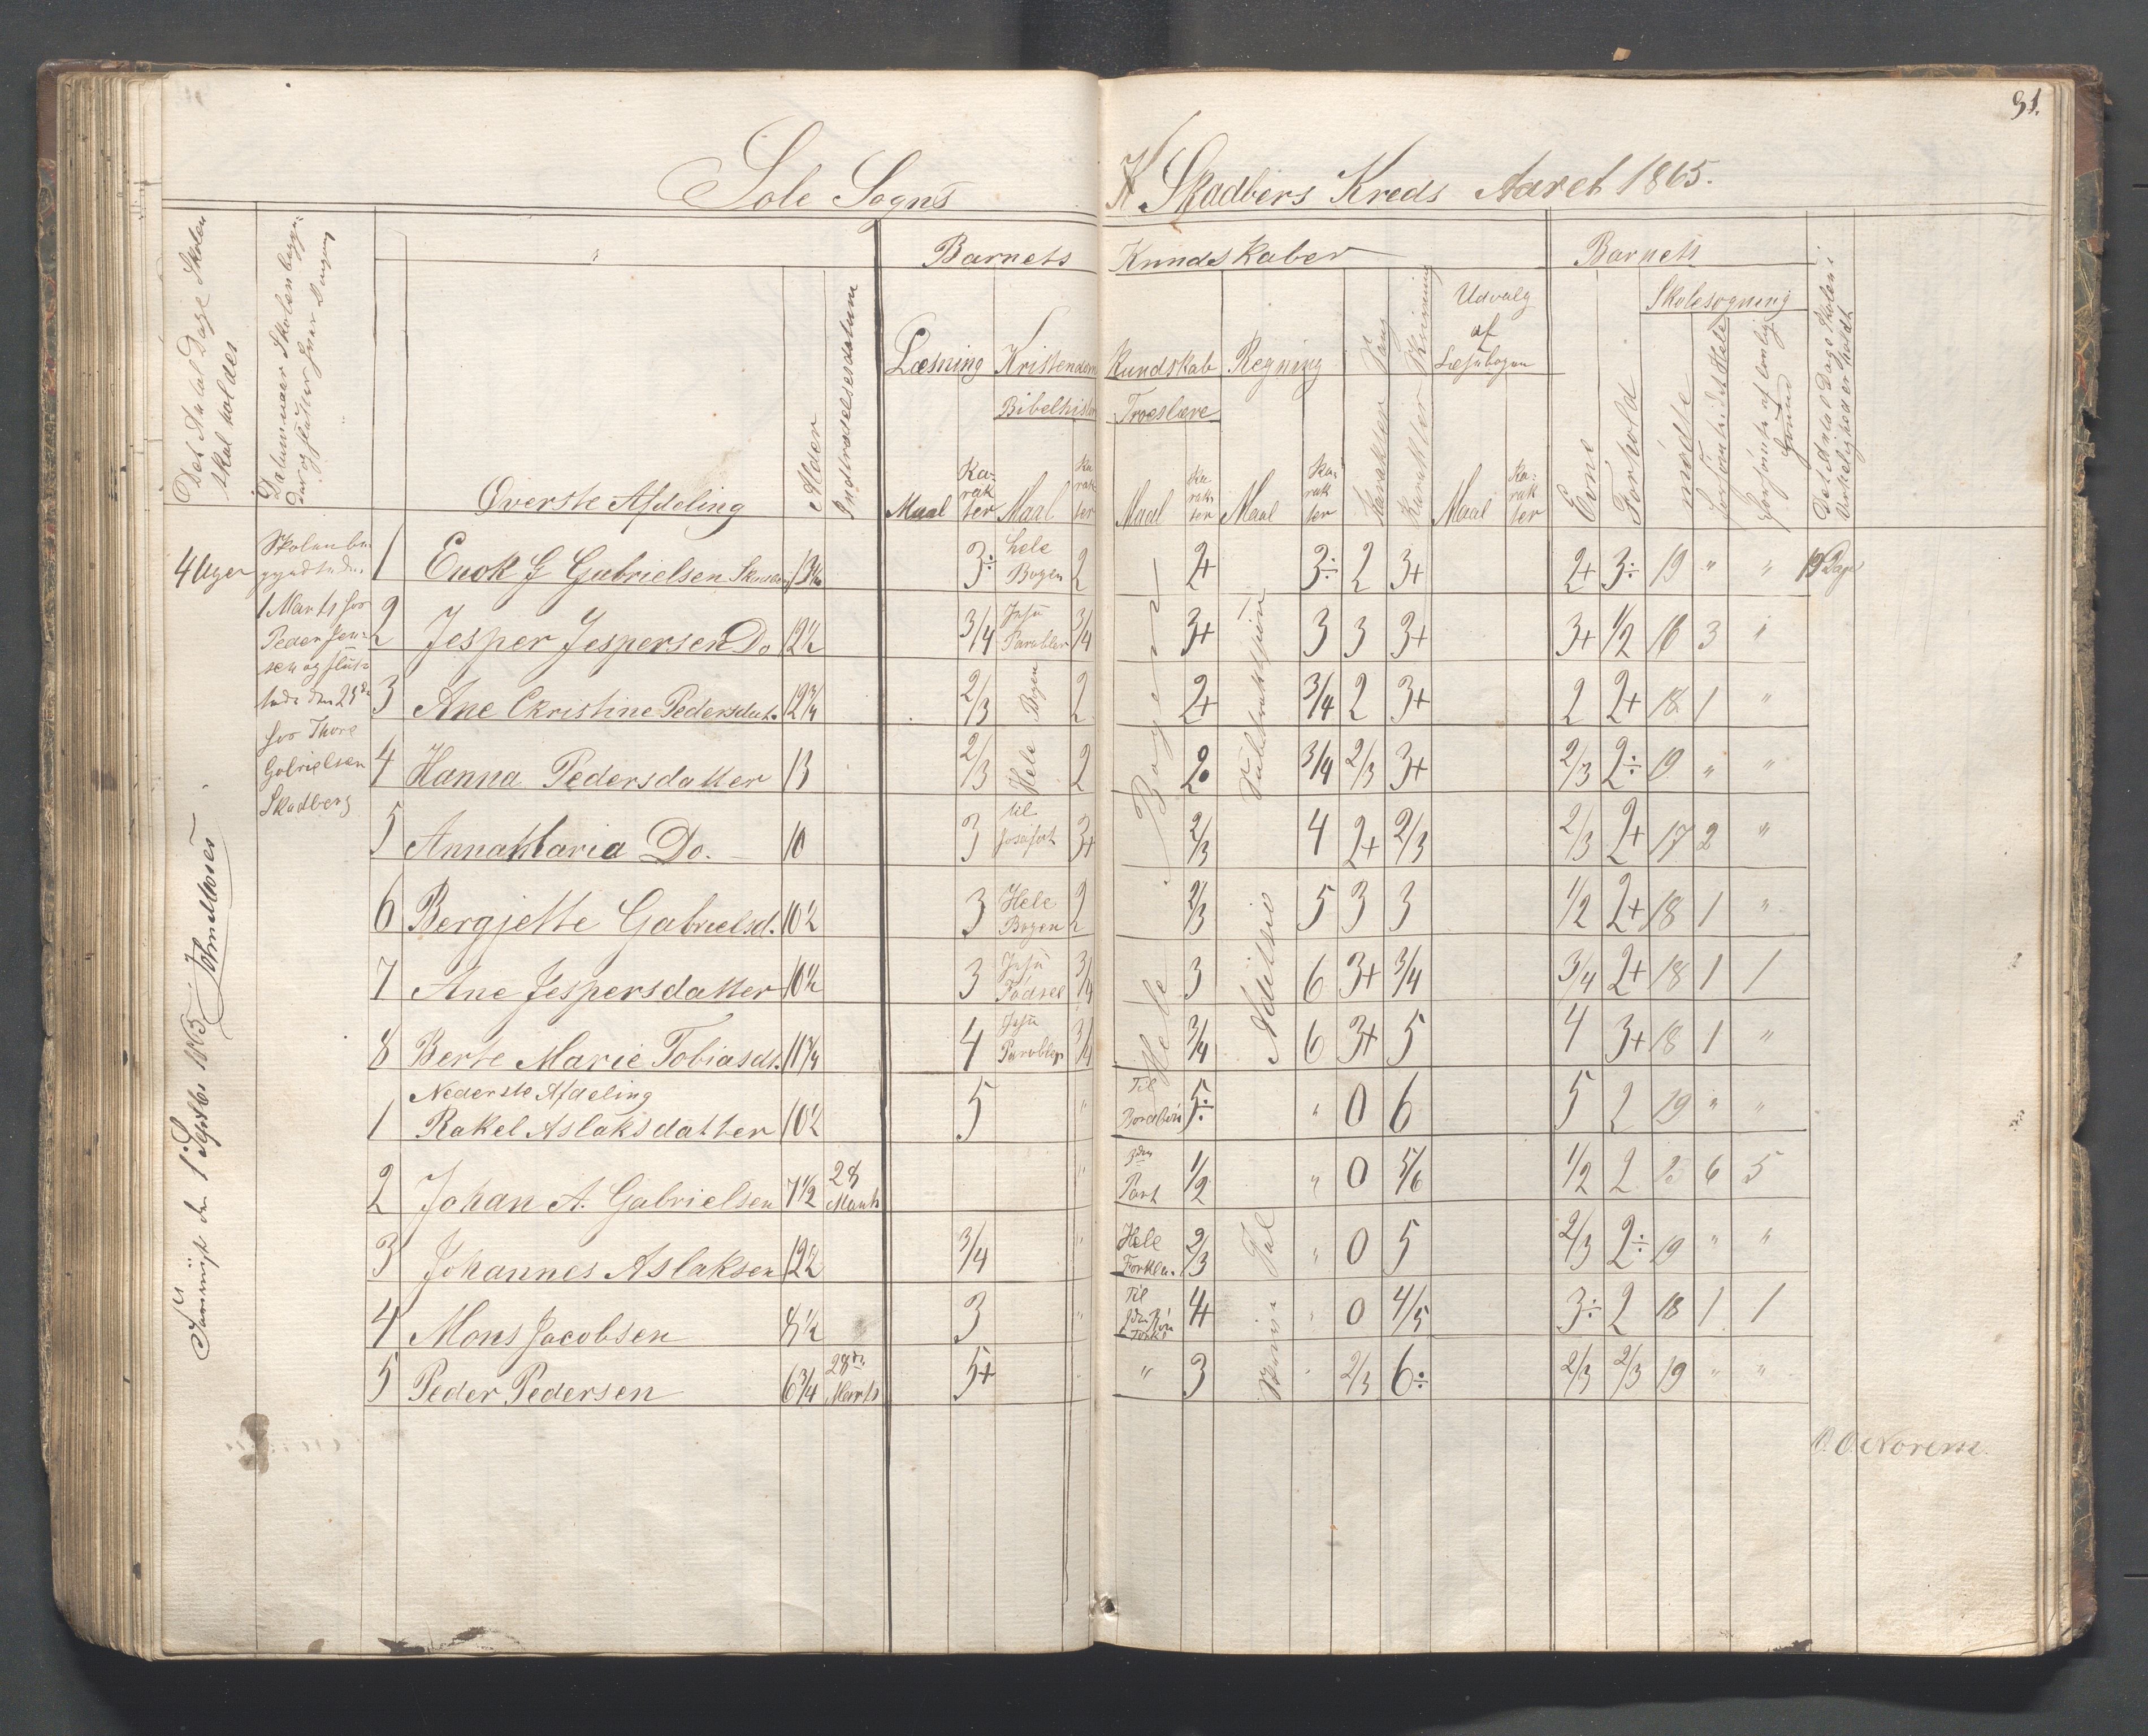 91.
Sole Sogns Skadbers Kreds Aaret 1865.
Det Antal Dage Skolen skal holdes
Datum naar Skolen begyn-
der og slutter hver Omgang
Øverste Afdeling
Alder
Indtrædelsesdatum
Barnets Kundskaber
Læsning Kristendom Kundskab Regning
Bibelhistor Troeslære
Maal Ka-rak-ter Maal Ka-rak-ter Maal Ka-rak-ter Maal Ka-rak-ter
Sang Karakter
Skrivning Karakter
Udvalg af Læsebogen
Maal Ka-rak-ter
Barnets
Evne
Forhold
Skolesøgning
mødte
forsømt i det Hele
forsømte af lovlig Grund
Det Antal Dage Skolen i Virkelighed er holdt
4 Uger
Skolen be-
gyndte den
1 Marts hos
Peder Jen-
sen og slut-
tede den 28de
hos Thore
Gabrielsen
Skadberg
1 Enok G Gabrielsen 3÷ hele Bogen 2 2+ 3÷ 2 3+ 2+ 3÷ 19 " " 19 Dage
2 Jesper Jespersen Do 12½ 3/4 Jesu Parabler 3/4 3+ 3 3 3+ 3+ 1/2 16 3 "
3 Ane Christine Pedersdat. 12¾ 2/3 2 2+ 3/4 2 3+ 2 2+ 18 1 "
4 Hanna Pedersdatter 13 2/3 2 2 3/4 2/3 3+ 2/3 2÷ 19 " "
Hele Bogen
5 Anna Maria Do. 10 3 til Josafat 3+ 2/3 4 2+ 2/3 2/3 2+ 17 2 "
6 Bergjette Gabrielsd. 10½ 3 Hele Bogen 2 2/3 5 3 3 1/2 2+ 18 1 "
7 Ane Jespersdatter 10½ 3 Jesu Fødsel 3/4 3 6 3+ 3/4 3/4 2+ 18 1 1
8 Berte Marie Tobiasdt. 11¾ 4 Jesu Parabler 3/4 3/4 6 3+ 5 4 3+ 18 1 "
Hele Bogen
Aditsio
Nederste Afdeling
1 Rakel Aslaksdatter 10½ 5 " Til 5÷ " 0 6 5 2 19 " "
2 Johan A. Gabrielsen 7½ 28 Marts " Part 1/2 " 0 5/6 1/2 2 6 5
3 Johannes Aslaksen 12½ 3/4 " Hele Forkla. 2/3 " 0 5 2/3 2÷ 19 " "
4 Mons Jacobsen 8½ 3 " Til 4+ " 0 4/5 3÷ 2 18 1 1
5 Peder Pedersen 6¾ 28de Marts 5+ " 3 " 2/3 6÷ 2/3 2/3 19 " "
Skrive Tal
O. O. Norem.
den 1 Septbr 1865.